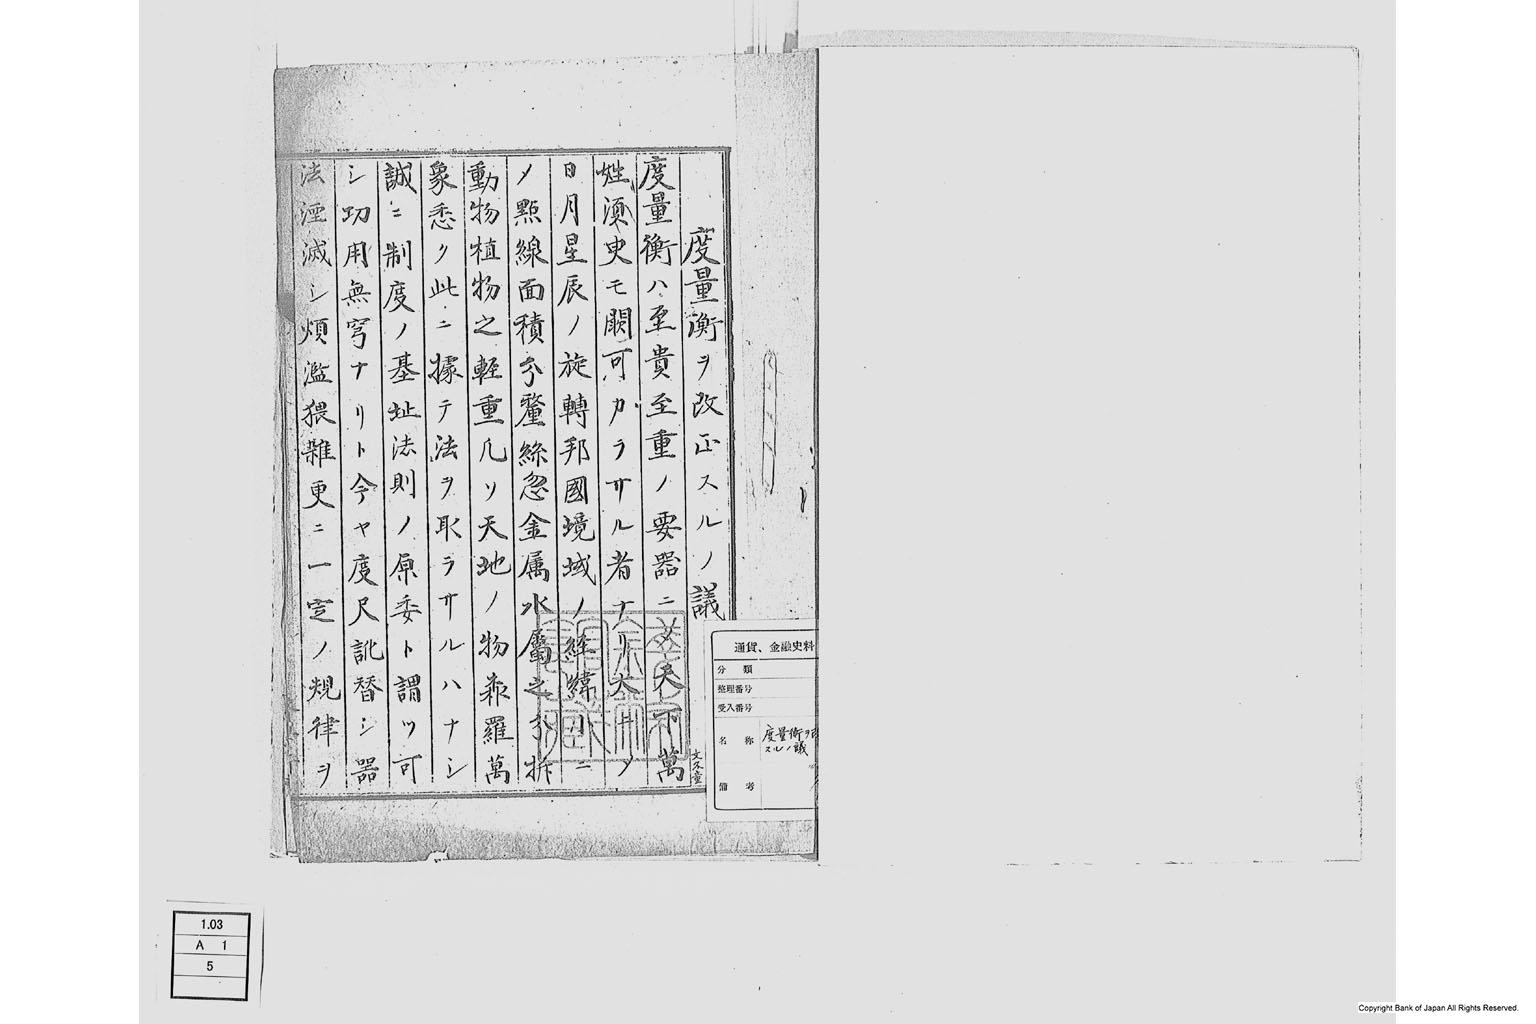 度量衡ヲ改正スルノ議
度量衡ハ至貴至重ノ要器ニメ天下萬
姓須臾モ闕可カラサル者ナリ大ニメ
日月星辰ノ旋轉邦國境域ノ經緯小ニ
メ點線面積分釐絲忽金属水屬之分拆
動物植物之軽重凡ソ天地ノ物森羅萬
象悉ク此ニ據テ法ヲ取ラサルハナシ
誠ニ制度ノ基址法則ノ原委ト謂ツ可
シ功用無窮ナリト今ヤ度尺訛替シ器
法湮滅シ煩濫猥雜更ニ一定ノ規律ヲ
通貨、金融史料
分類
整理番号
受入番号
名称 度量衡ヲ改
スルノ議
備考
1.03
A 1
5
Copyright Bank of Japan All Rights Reserved.